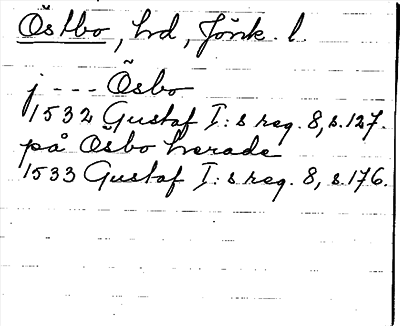 Östbo, hd, Jönk. l.
j - - - Ösbo
1532 Gustaf I:s reg. 8, s. 127.
på Ösbo herade
1533 Gustaf I:s reg. 8, s. 176.